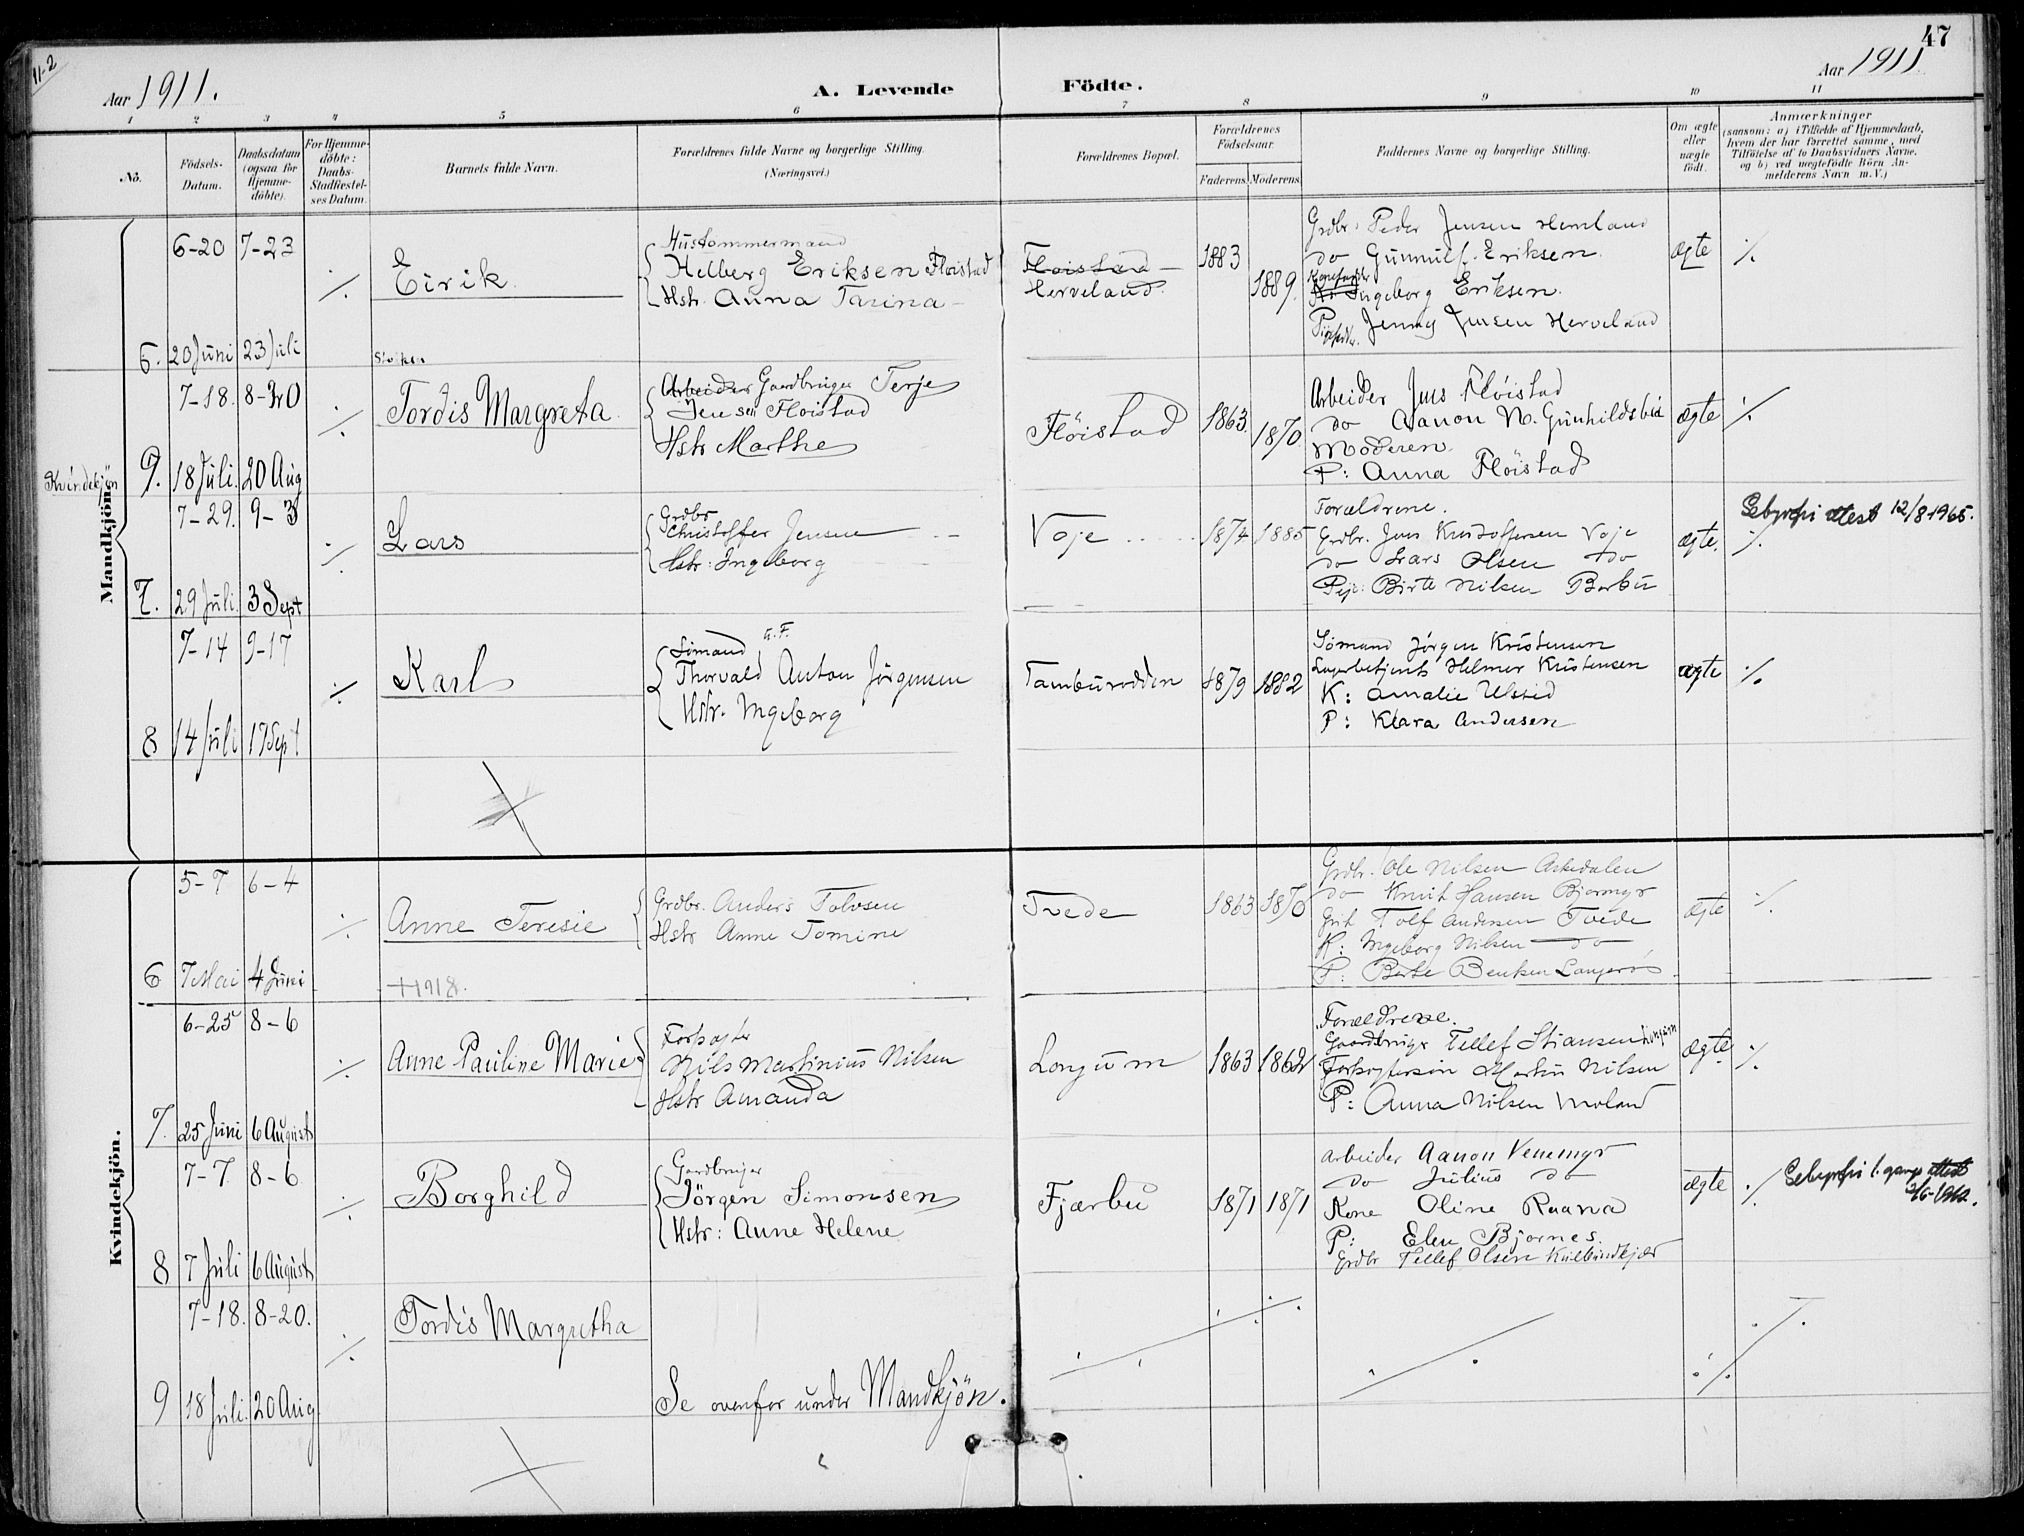 47
11-2
Aar 1911.
A. Levende Födte.
Aar 1911
1 2 3 4 5 6 7 8 9 10 11
No.
Födsels-Datum.
Daabsdatum (ogsaa for Hjemme-döbte).
For Hjemme-döbte: Daabs-Stadfæstel-ses Datum.
Barnets fulde Navn.
Forældrenes fulde Navne og borgerlige Stilling.
(Næringsvei.)
Forældrenes Bopæl.
Forældrenes Födselsaar.
Faderens. Moderens.
Faddernes Navne og borgerlige Stilling.
Om ægte eller uægte födt.
Anmærkninger
(saasom: a) i Tilfælde af Hjemmedaab, hvem der har forrettet samme, med Tilföielse af to Daabsvidners Navne, og b) ved uægtefödte Börn Anmelderens Navn m. V.)
Mandkjön.
6-20 7-23
6. 20 Juni 23 Juli
Eirik
Hustømmermand
Helberg Eriksen Floistad
Hstr. Anna Tasina
Floistad
Herveland
1883 1889.
Grdbr. Peder Jensen Hemland
do Gunnulf Eriksen
Ingeborg Eriksen.
Jenny Jensen Herveland
ægte ./.
Kvindekjön
7-18. 8-20
9. 18 Juli. 20 Aug
Tordis Margreta
Arbeider Gaardbruger Terje
Jensen Floistad
Hstr Marthe
Flöistad
1863 1870
Arbeider Jens Flöistad
do Aanon N. Gunhildsbu
Moderen
P: Anna Flöistad
ægte ./.
7-29. 9-3
7. 29 Juli. 3 Sept
Lars
Grdbr
Christoffer Jensen
Hstr: Ingeborg
Voje
1874 1885
Forældrene.
Grdbr. Jens Kristoffersen Voje
do Lars Olsen do
Pige: Birte Nilsen Barbu
ægte. ./.
Gebyrfri attest 12/8-1965.
7-14 9-17
8 14 Juli 17 Sept
Karl
Sömand G.F.
Thorvald Anton Jörgensen
Hstr. Ingeborg
Tamburodden
1879 1882
Sömand Jörgen Kristensen
Lagerbetjent Helmer Kristensen
K: Amalie Ulstid
P: Klara Andersen
ægte ./.
Kvindekjön.
5-7 6-4
6 7 Mai 4 Juni
Anne Teresie
+1918.
Grdbr. Anders Tolvsen
Hstr Anne Tomine
Tvede
1863 1870
Grdbr. Ole Nilsen Askedalen
do Knut Hansen Bjormyr
Tolf Andersen Tvede
K: Ingeborg Nilsen do
P: Berte Bentsen
ægte ./.
6-25 8-6
7. 25 Juni 6 August
Anne Pauline Marie
Forpagter
Nils Martinius Nilsen
Hstr Amanda
Longum
1863 1862
Forældrene.
Gaardbruger Tellef Stiansen Longum
Forpagtersön Martin Nilsen
P: Anna Nilsen Moland
ægte ./.
7-7 8-6
8 7 Juli 6 August
Borghild
Gardbruger
Jörgen Simonsen
Hstr: Anne Helene
Fjærbu
1871 1871
Arbeider Aanon Venemyr
do Julius do
Kone Oline Raana
P: Elen Bjornes.
Grdbr Tellef Olsen
ægte ./.
Gebyrfri 1. gangs attest
7-18. 8-20.
9 18 Juli. 20 Aug
Tordis Margretha
Se ovenfor under Mandkjön.